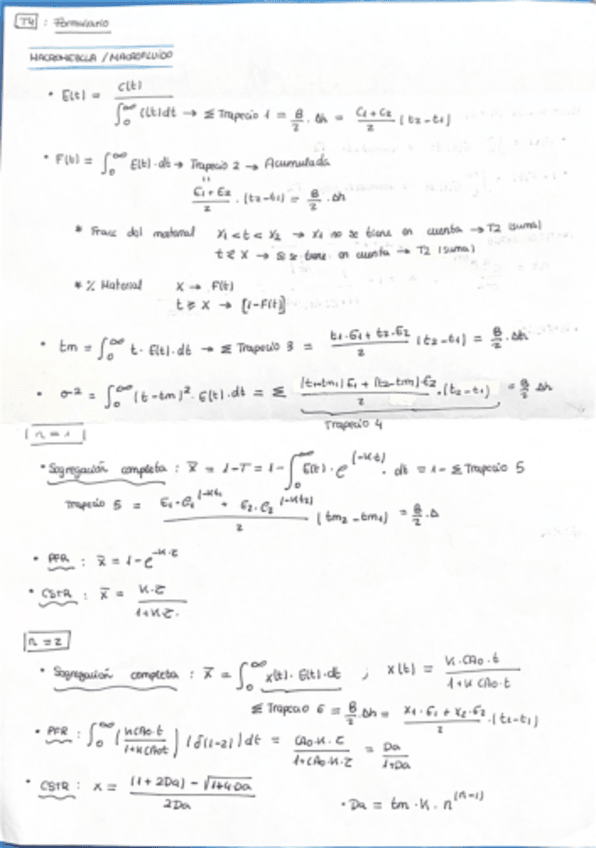 T4 : Formulario
MACROMEZCLA / MACROFLUIDO
• E(t) = C(t) / ∫₀^∞ C(t)dt → Σ Trapecio 1 = B/2 · Δh = (C1 + C2)/2 (t2 - t1)
• F(t) = ∫₀^∞ E(t)·dt → Trapecio 2 → Acumulada
(E1 + E2)/2 · (t2 - t1) = B/2 · Δh
* Frac del material x1 < t < x2 → x1 no se tiene en cuenta → T2 (suma)
t ≥ x → Sí se tiene en cuenta → T2 (suma)
* % Material x → F(t)
t ≥ x → [1 - F(t)]
• tm = ∫₀^∞ t · E(t) · dt → Σ Trapecio 3 = (t1·E1 + t2·E2)/2 (t2 - t1) = B/2 · Δh
• σ² = ∫₀^∞ (t - tm)² · E(t) · dt = Σ ((t1-tm) E1 + (t2-tm)·E2)/2 · (t2 - t1) = B/2 Δh
Trapecio 4
n = 1
• Segregación completa : x̄ = 1 - T = 1 - ∫₀^∞ E(t) · e^(-K t) · dt = 1 - Σ Trapecio 5
Trapecio 5 = (E1·e1^(-K t1) + E2·e2^(-K t2))/2 (tm2 - tm1) = B/2 · Δ
• PFR : x̄ = 1 - e^(-K·τ)
• CSTR : x̄ = K·τ / (1 + K·τ)
n = 2
• Segregación completa : x̄ = ∫₀^∞ x(t) · E(t) · dt ; x(t) = K·CA0·t / (1 + K CA0·t)
Σ Trapecio 6 = B/2 · Δh = (x1·E1 + x2·E2)/2 · (t2 - t1)
• PFR : ∫₀^∞ (K CA0·t / (1 + K CA0 t)) (δ(1-2)) dt = CA0·K·τ / (1 + CA0·K·τ) = Da / (1 + Da)
• CSTR : x = ((1 + 2Da) - √(1 + 4Da)) / 2Da
• Da = tm · K · n^(n-1)